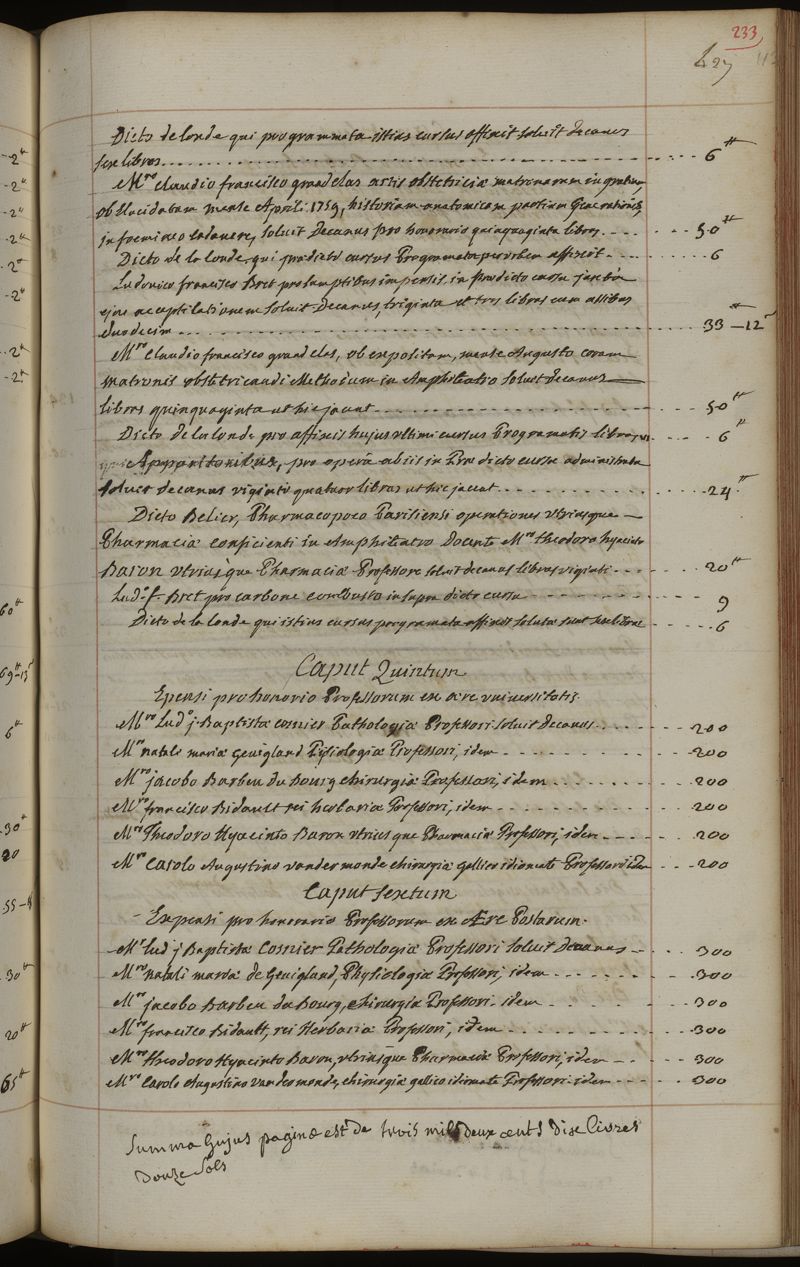 233
Dicto de londe qui programmata istius cursus affixit soluit Decanus
sex libras 6 ₶
M.ro claudio francisco grandclas artis obstetriciæ matronarum in gratiam
ob elucidatam mense Aprili 1759, historiam anatomicam partium Generationis,
in foemineo cadavere, soluit Decanus pro honorario quinquaginta libras 50 ₶
Dicto de la londe, qui prædicti cursus Programmata affixit 6
Ludovico francisco Bret pro sumptibus impensis in Prædicto cursu juxta
ejus acceptilationem soluit Decanus, triginta et tres libras cum assibus
duodecim 33 — 12 s
M.ro Claudio francisco grandclas, ob expositam, mense Augusto coram
matronis obstetricandi Methodum in Amphiteatro soluit decanus
libras quinquaginta ut hic jacent 50 ₶
Dicto de la londe pro affixis hujus ultimi cursus Programatis libras 6 ₶
Apparitoribus, pro operâ ab iis in Præ dicto cursu administrata
soluit decanus viginti quatuor libras ut hic jacent 24 ₶
Dicto Belier, Pharmacopoeo Parisiensi operationes utriusque
Pharmaciæ conficienti in Amphiteatro Docente M.ro theodoro hyacinto
Baron utriusque Pharmaciæ Professore soluit decanus libras viginti 20 ₶
Lud.o f. Bret pro carbone combusto in supra dicto cursu 9
Dicto de la londe qui istius cursus programata affixit solutæ sunt sex libræ 6
Caput Quintum
Expensi pro honorario Professorum ex ære universitatis.
M.ro Lud.o j. Baptistæ cosnier Pathologiæ Professori soluit decanus 200
M.ro natali mariæ Gevigland Phisiologiæ Professori, idem 200
M.ro jacobo Barbeu du Bourg chirurgiæ Professori, idem 200
M.ro francisco Bidault rei herbariæ Professori, idem 200
M.ro Theodoro Hyacinto Baron utriusque Pharmaciæ Professori, idem 200
M.ro Carolo Augustino vandermonde chirurgiæ gallico idiomate Professori idem 200
Caput sextum
Expensi pro honorario Professorum ex Ære Postarum.
M.r Lud j Baptistæ Cosnier Pathologiæ Professori soluit Decanus 300
M.ro natali mariæ de Gevigland, Physiologiæ Professori, idem 300
M.ro jacobo Barbeu du Bourg, chirurgiæ Professori idem 300
M.ro francisco Bidault, rei Herbariæ Professori, idem 300
M.ro theodoro Hyacinto Baron, utriusque Pharmaciæ Professori, idem 300
M.ro Carolo Augustino vandermonde, chirurgiæ gallico idiomate Professori idem 300
Summa hujus paginæ est de trois mil deux cents Dix livres
Douze sols